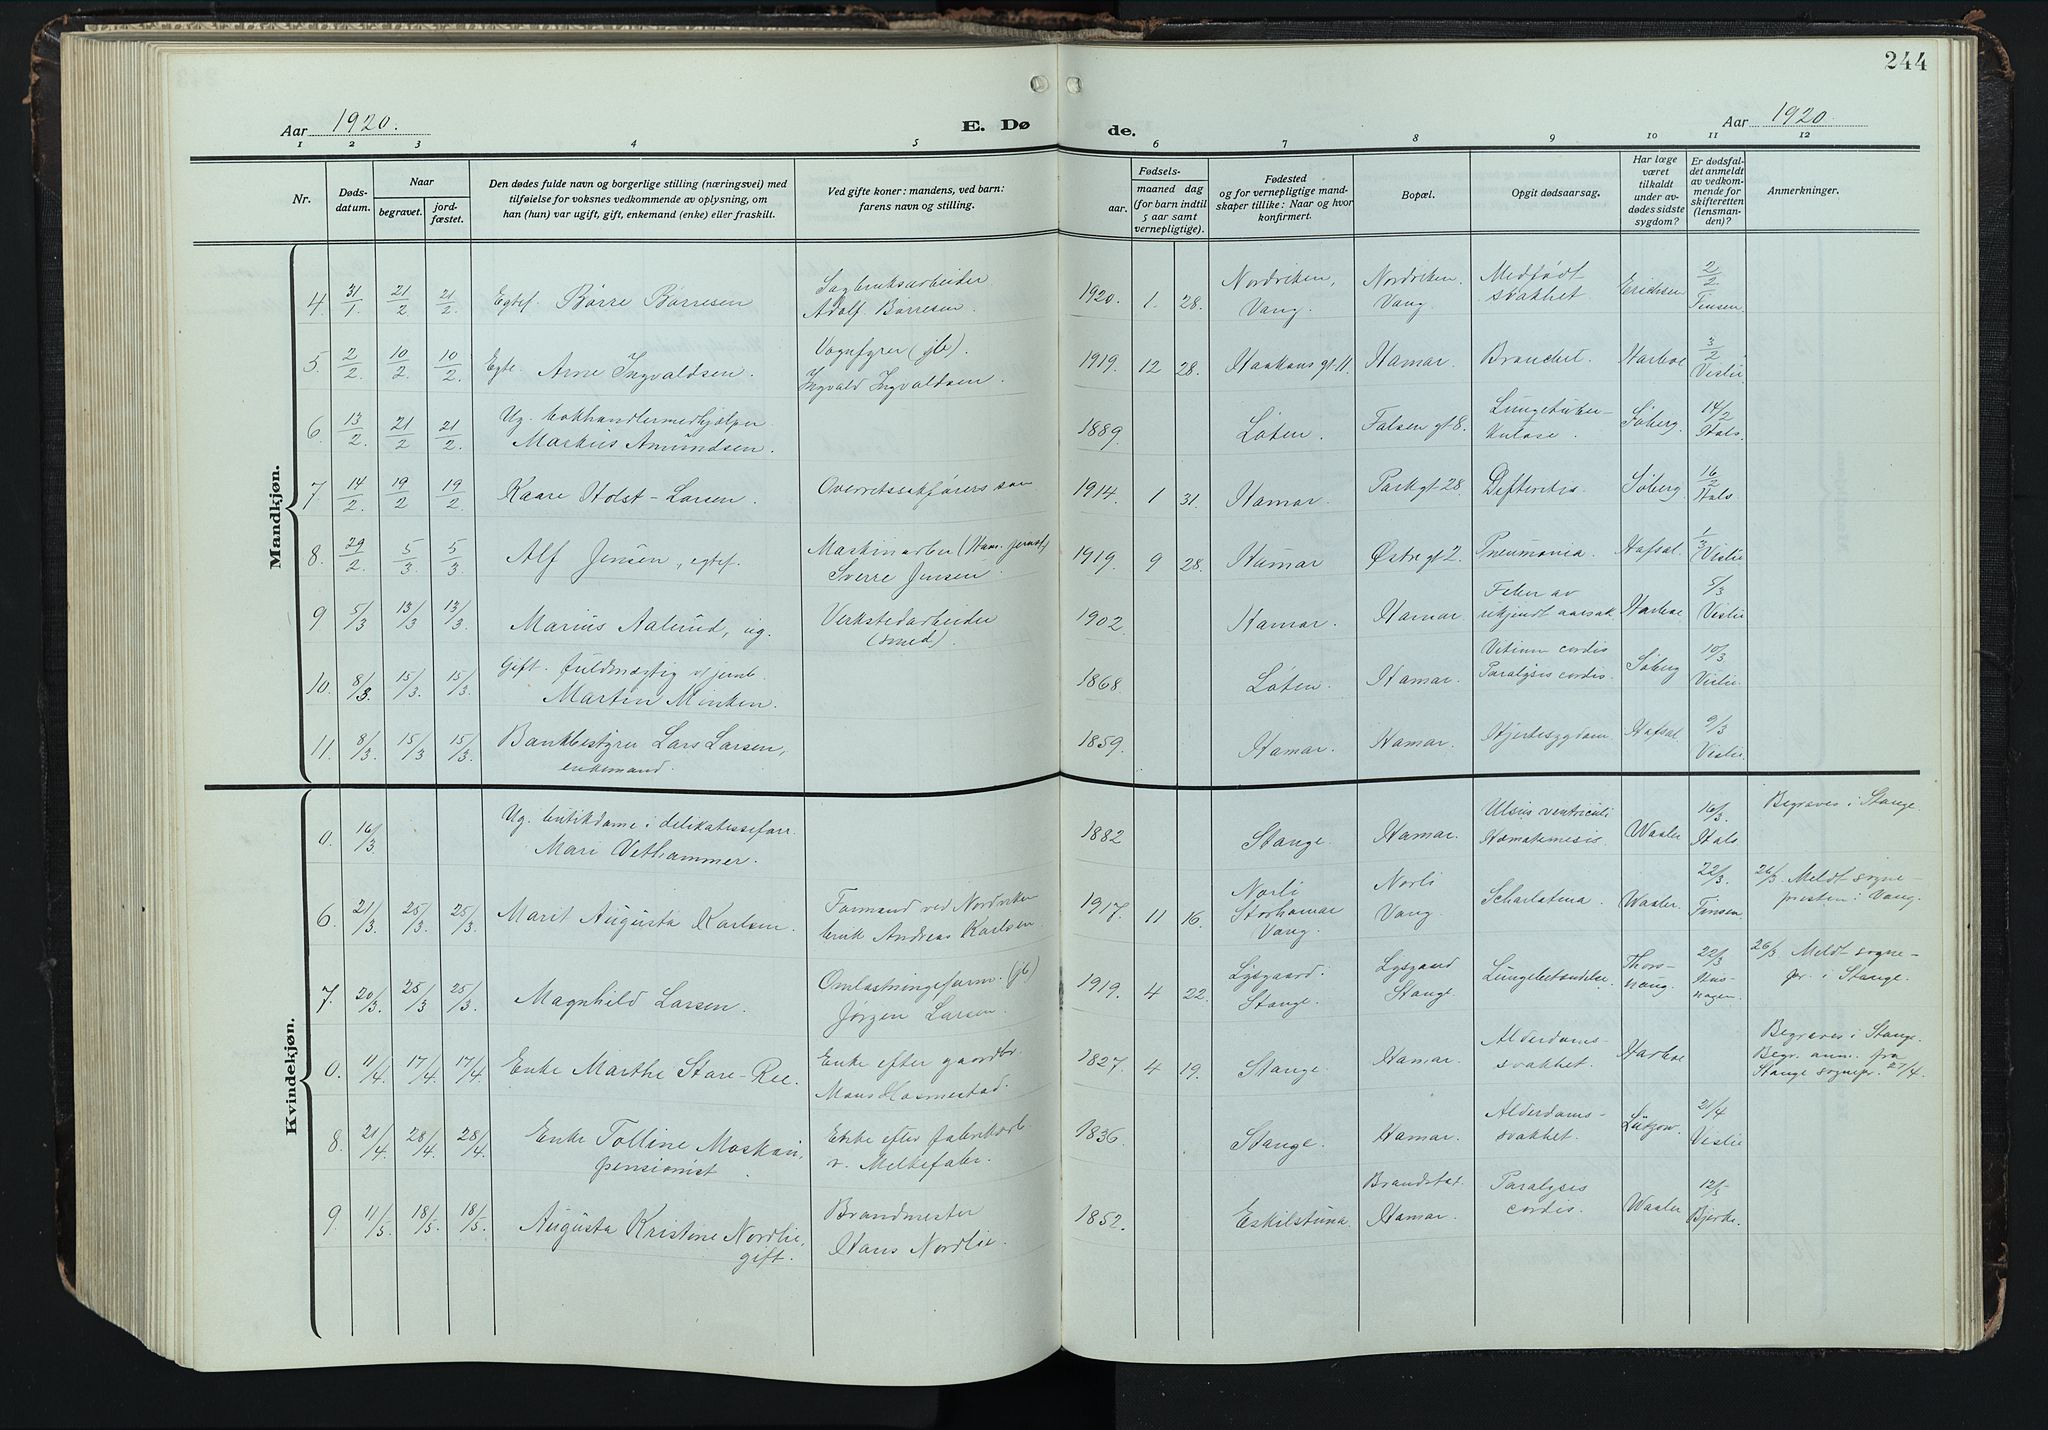 244
Aar 1920.
E. Dø
de.
Aar 1920
1 2 3 4 5 6 7 8 9 10 11 12
Nr.
Døds-
datum.
Naar
begravet.
jord-
fæstet.
Den dødes fulde navn og borgerlige stilling (næringsvei) med
tilføielse for voksnes vedkommende av oplysning, om
han (hun) var ugift, gift, enkemand (enke) eller fraskilt.
Ved gifte koner: mandens, ved barn:
farens navn og stilling.
Fødsels-
aar.
maaned dag
(for barn indtil
5 aar samt
vernepligtige).
Fødested
og for vernepligtige mand-
skaper tillike: Naar og hvor
konfirmert.
Bopæl.
Opgit dødsaarsag.
Har læge
været
tilkaldt
under av-
dødes sidste
sygdom?
Er dødsfal-
det anmeldt
av vedkom-
mende for
skifteretten
(lensman-
den)?
Anmerkninger.
Mandkjøn.
4. 31/1 21/2 21/2 Egtef. Børre Børresen Sagbruksarbeider
Adolf Børresen. 1920. 1. 28. Nordviken,
Vang. Nordviken.
Vang. Medfødt
svakhet. Erichsen 2/2
Finsen.
5. 2/2 10/2 10/2 Egte. Arne Ingvaldsen. Vognfyrer (jb).
Ingvald Ingvaldsen. 1919. 12 28. Haakons gt 11. Hamar. Bronchit. Harboe 3/2
Vislie.
6. 13/2 21/2 21/2 Ug. bokhandlermedhjælper
Markus Amundsen. 1889. Løten. Falsen gt 8. Lungetuber-
kulose. Søberg. 14/2
Hals.
7 14/2 19/2 19/2 Kaare Holst-Larsen. Overretssakførers søn 1914. 1 31. Hamar. Parkgt 28. Difteritis. Søberg. 16/2
Hals.
8. 29/2 5/3 5/3 Alf Jensen, egtef. Maskinarbei (Ham. jernst.)
Sverre Jensen. 1919. 9 28. Hamar Østregt 2. Pneumonia. Hafsal. 1/3
Vislie
9 5/3 13/3 13/3 Marius Aalund, ug. Verkstedarbeider
(smed). 1902. Hamar. Hamar Feber av
ukjendt aarsak. Harboe 5/3
Vislie
10. 8/3 15/3 15/3 Gift. fuldmægtig v/jernb.
Martin Minken. 1868. Løten. Hamar. Vitium cordis
Paralysis cordis. Søberg 10/3
Vislie.
11. 8/3 15/3 15/3 Bankbestyrer Lars Larsen,
enkemand. 1859. Hamar. Hamar. Hjertesygdom. Hafsal. 9/3
Vislie.
Kvindekjøn.
0. 16/3 Ug. butikdame i delikatesseforr.
Mari Vethammer. 1882 Stange. Hamar. Ulsus ventriculi
Hæmatemesis. Waaler 16/3
Hals. Begraves i Stange.
6 21/3 25/3 25/3 Marit Augusta Karlsen. Formand ved Nordviken
bruk Andreas Karlsen. 1917. 11 16. Norli
Storhamar
Vang. Norli
Vang. Scharlatina. Waaler. 22/3.
Finsen 26/3. Meldt sogne-
presten i Vang.
7. 20/3 25/3 25/3 Magnhild Larsen. Omlastningsform. (jb)
Jørgen Larsen. 1919. 4 22. Lysgaard.
Stange. Lysgaard
Stange. Lungebetændelse. Thors-
haug. 22/3. 26/3 Meldt sogne-
pr. i Stange.
0. 11/4 17/4 17/4. Enke Marthe Stare-Ree. Enke efter gaardbr.
Mons Hosmestad. 1827. 4 19. Stange. Hamar. Alderdoms-
svakhet. Harboe Begraves i Stange.
Begr. anm. fra
Stange sognepr. 27/4.
8. 21/4 28/4 28/4. Enke Tolline Moskau,
pensionist. Enke efter fabrikarb.
v. Melkefabr. 1836. Stange. Hamar. Alderdoms-
svakhet. Lützow. 21/4
Vislie
9. 11/5 18/5 18/5. Augusta Kristine Nordlie,
gift. Brandmester
Hans Nordlie. 1852. Eskilstuna. Brandstat.
Hamar. Paralysis
cordis. Waaler. 12/5
Bjerke.